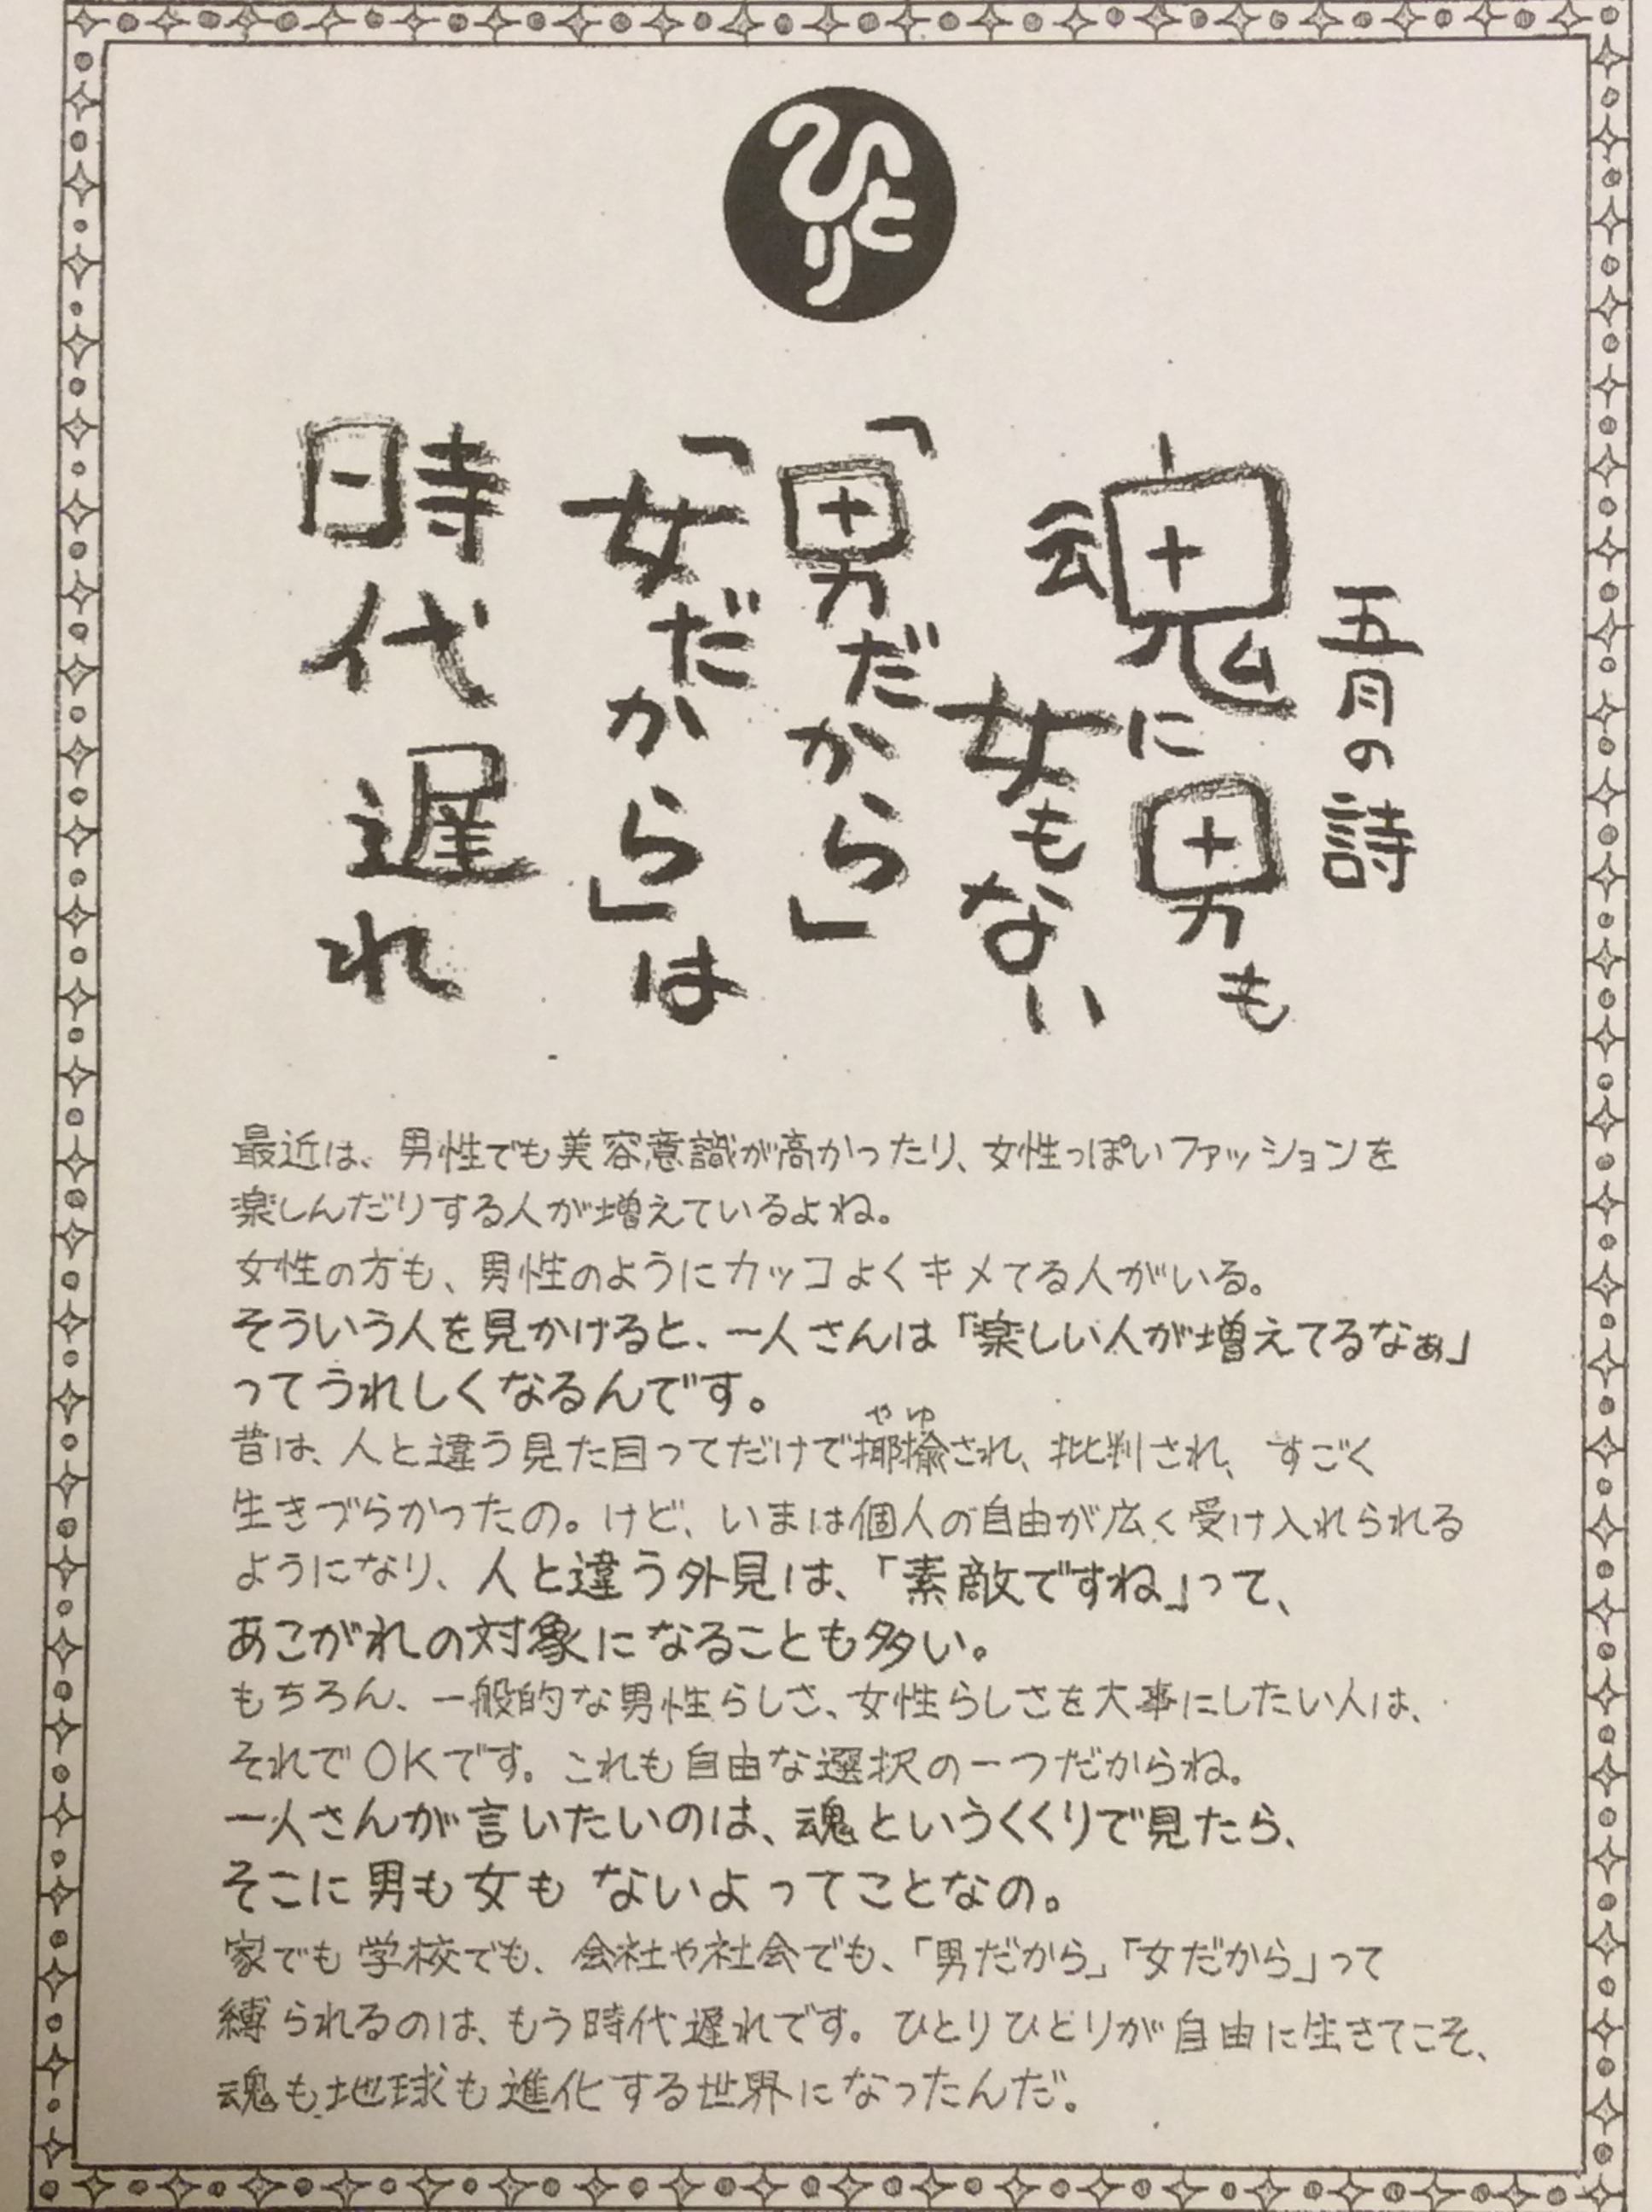 ひとり
五月の詩
魂に男も
女もない
「男だから」
「女だから」は
時代遅れ
最近は、男性でも美容意識が高かったり、女性っぽいファッションを
楽しんだりする人が増えているよね。
女性の方も、男性のようにカッコよくキメてる人がいる。
そういう人を見かけると、一人さんは「楽しい人が増えてるなぁ」
ってうれしくなるんです。
やゆ
昔は、人と違う見た目ってだけで揶揄され、批判され、すごく
生きづらかったの。けど、いまは個人の自由が広く受け入れられる
ようになり、人と違う外見は、「素敵ですね」って、
あこがれの対象になることも多い。
もちろん、一般的な男性らしさ、女性らしさを大事にしたい人は、
それでOKです。これも自由な選択の一つだからね。
一人さんが言いたいのは、魂というくくりで見たら、
そこに男も女もないよってことなの。
家でも学校でも、会社や社会でも、「男だから」「女だから」って
縛られるのは、もう時代遅れです。ひとりひとりが自由に生きてこそ、
魂も地球も進化する世界になったんだ。